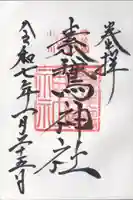 奉拝
素鵞神社
令和七年一月二十五日